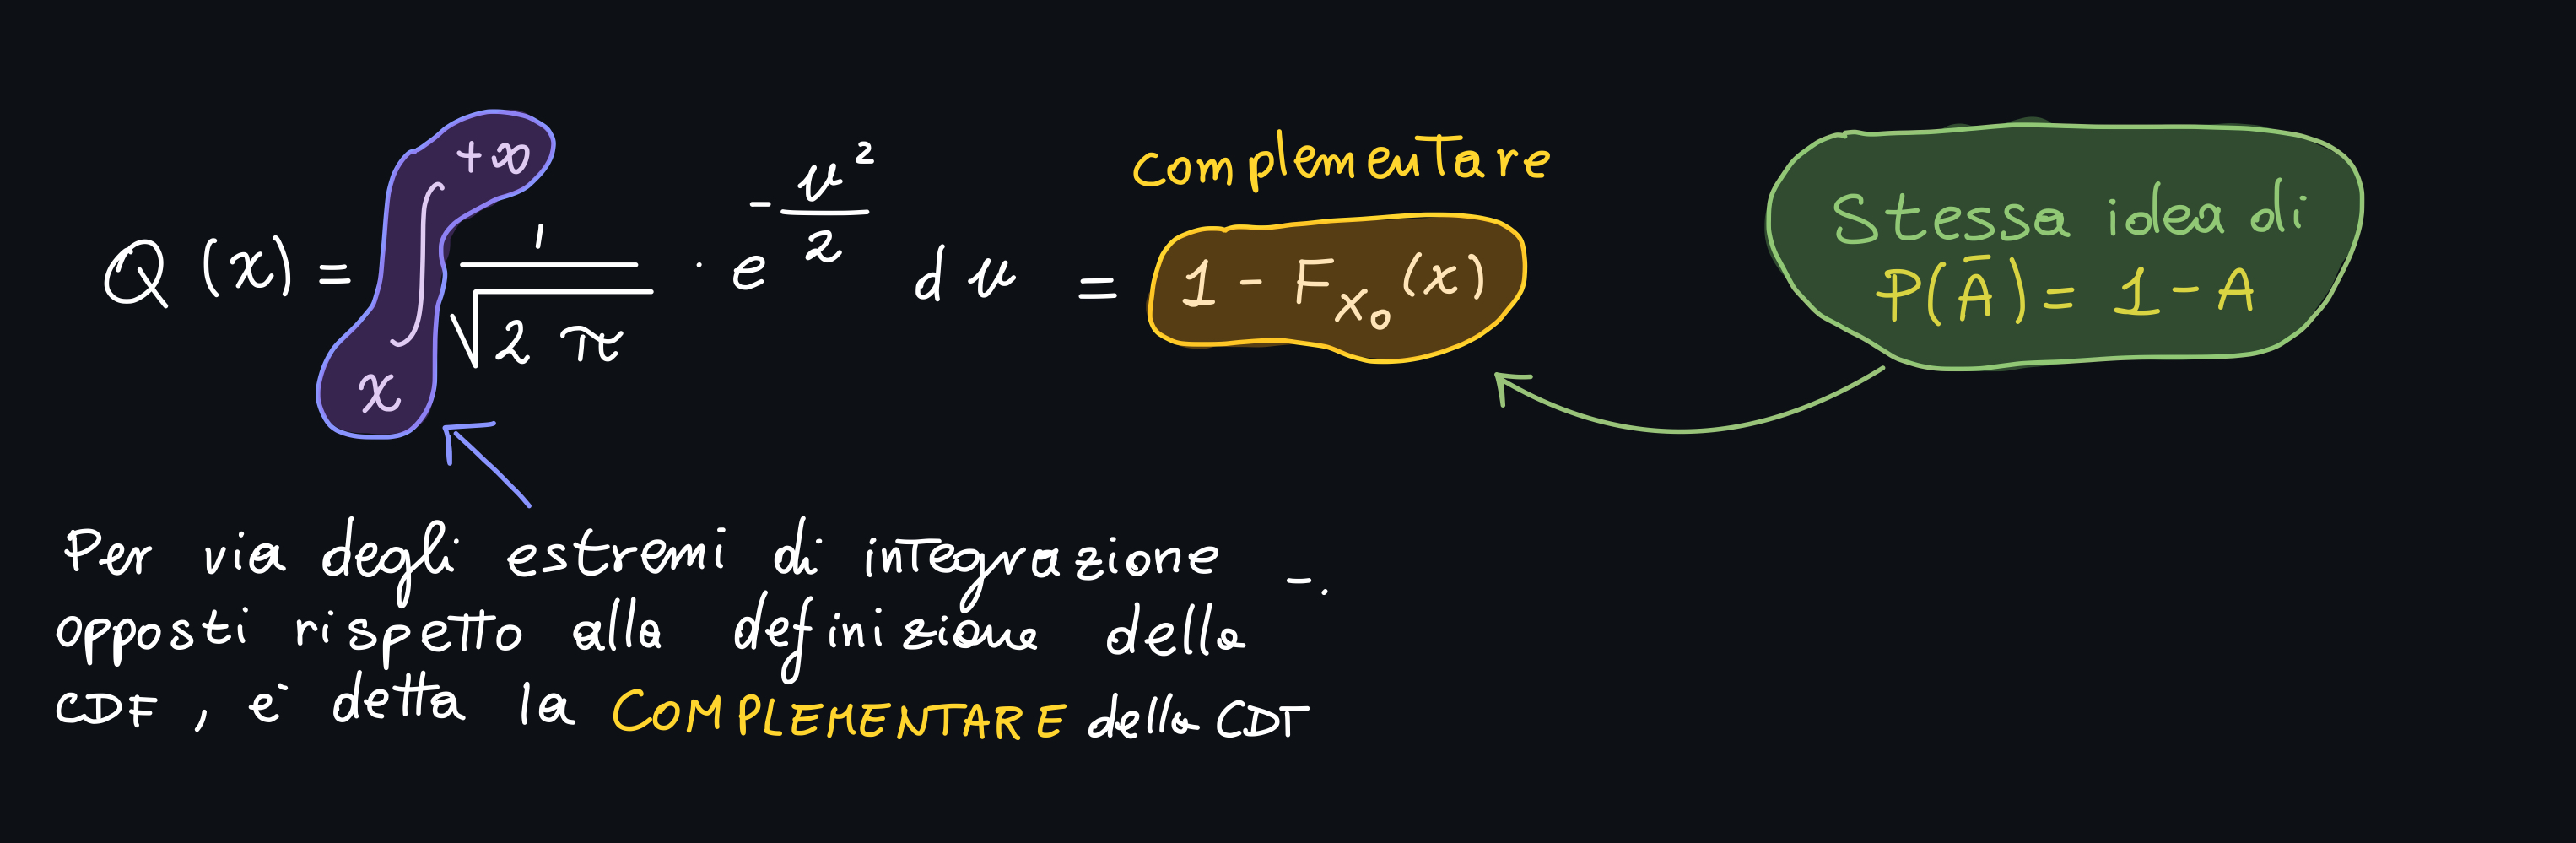 complementare
Q(x) = ∫ₓ^{+∞} 1/√(2π) · e^{-u²/2} du = 1 - F_{X₀}(x)
Stessa idea di
P(Ā) = 1 - A
Per via degli estremi di integrazione
opposti rispetto alla definizione della
CDF, è detta la COMPLEMENTARE della CDT